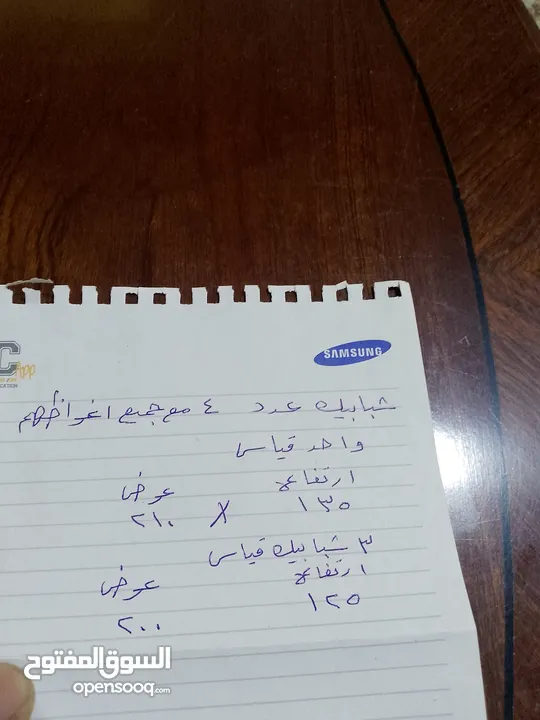 SAMSUNG
C
App
شبابيك عدد ٤ مع جميع اغراضهم
واحد قياس
ارتفاع عرض
١٣٥ X ٢١٠
٣ شبابيك قياس
ارتفاع عرض
١٢٥ ٢٠٠
السوق المفتوح
opensooq.com